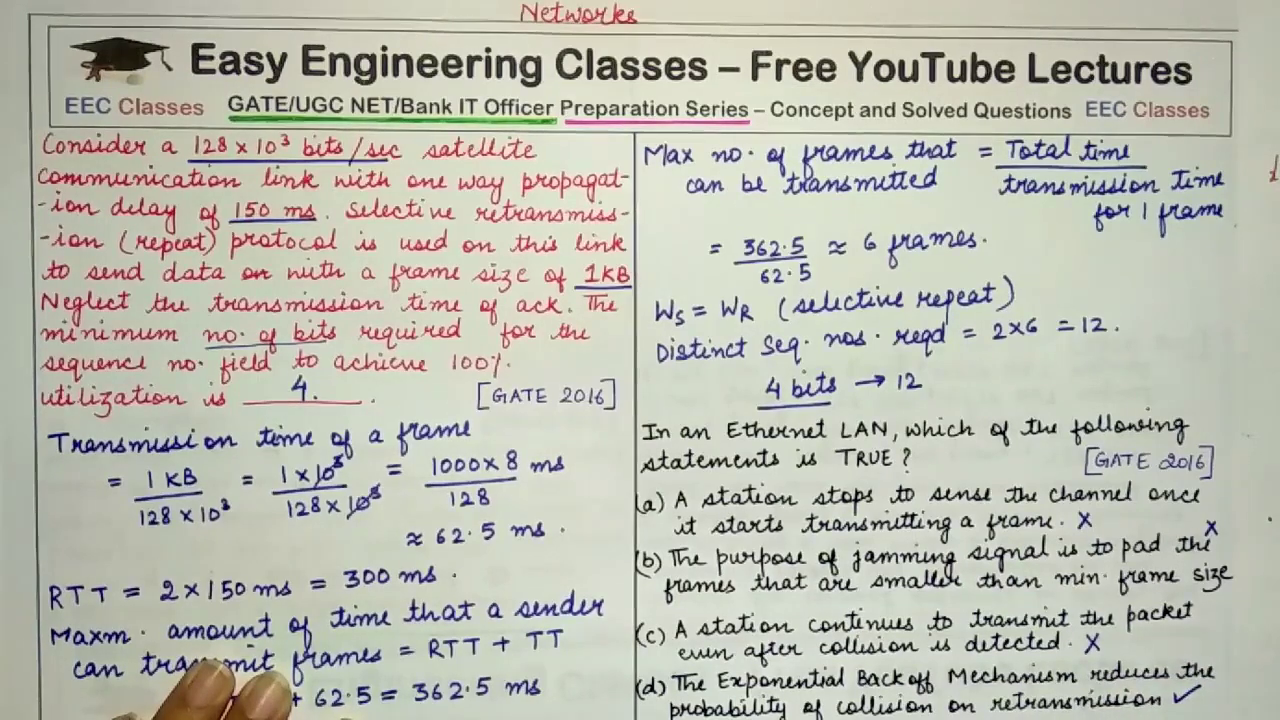 Networks
Easy Engineering Classes – Free YouTube Lectures
EEC Classes GATE/UGC NET/Bank IT Officer Preparation Series – Concept and Solved Questions EEC Classes
Consider a 128 x 10³ bits/sec satellite
communication link with one way propagat-
-ion delay of 150 ms. Selective retransmiss-
-ion (repeat) protocol is used on this link
to send data on with a frame size of 1KB
Neglect the transmission time of ack. The
minimum no. of bits required for the
sequence no. field to achieve 100%.
utilization is 4. . [GATE 2016]
Transmission time of a frame
= 1 KB / 128 x 10³ = 1 x 10³ / 128 x 10³ = 1000 x 8 / 128 ms
≈ 62.5 ms .
RTT = 2 x 150 ms = 300 ms .
Maxm. amount of time that a sender
can transmit frames = RTT + TT
+ 62.5 = 362.5 ms
Max no. of frames that = Total time
can be transmitted transmission time
for 1 frame
= 362.5 / 62.5 ≈ 6 frames.
Ws = WR (selective repeat)
Distinct Seq. nos. reqd = 2x6 = 12.
4 bits → 12
In an Ethernet LAN, which of the following
statements is TRUE? [GATE 2016]
(a) A station stops to sense the channel once
it starts transmitting a frame. X
(b) The purpose of jamming signal is to pad the X
frames that are smaller than min. frame size
(c) A station continues to transmit the packet
even after collision is detected. X
(d) The Exponential Back off Mechanism reduces the
probability of collision on retransmission ✓